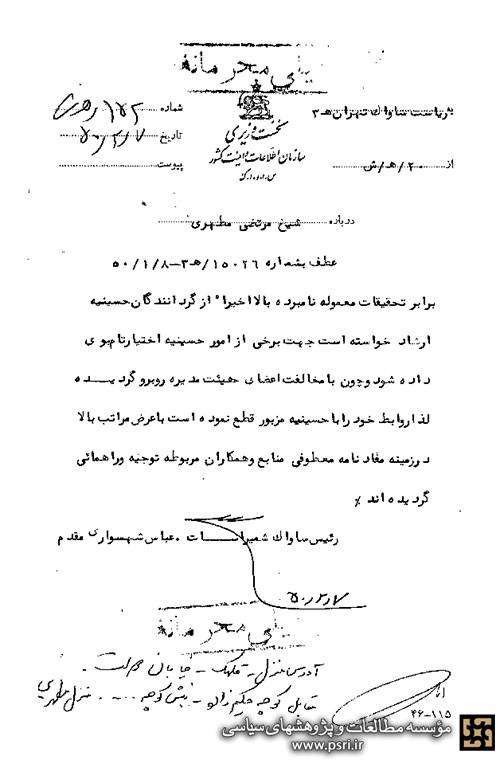 خیلی محرمانه
نخست وزیری
سازمان اطلاعات و امنیت کشور
س.ا.و.ا.ک
به ریاست ساواک تهران ه‍ ۳
از ۲۰/ه‍/ش
شماره
تاریخ ۵۰/۲/۷
پیوست
درباره شیخ مرتضی مطهری
عطف بشماره ۱۵۰۲۶/ه‍ ۳-۵۰/۱/۸
برابر تحقیقات معموله نامبرده بالا اخیراً از گردانندگان حسینیه
ارشاد خواسته است جهت برخی از امور حسینیه اختیار تام بوی
داده شود و چون با مخالفت اعضای هیئت مدیره روبرو گردیـــده
لذا روابط خود را با حسینیه مزبور قطع نموده است با عرض مراتب بالا
در زمینه مفاد نامه معطوفی منابع و همکاران مربوطه توجیه و راهنمائی
گردیده اند ٪
رئیس ساواک شمیرانـــات . عباس شهسواری مقدم
۵۰/۲/۷
خیلی محرمانه
آدرس منزل - قلهک - خیابان دولت .
مقابل کوچه - نبش کوچه .... منزل مطهری
۴۶-۱۱۵
مؤسسه مطالعات و پژوهشهای سیاسی
www.psri.ir